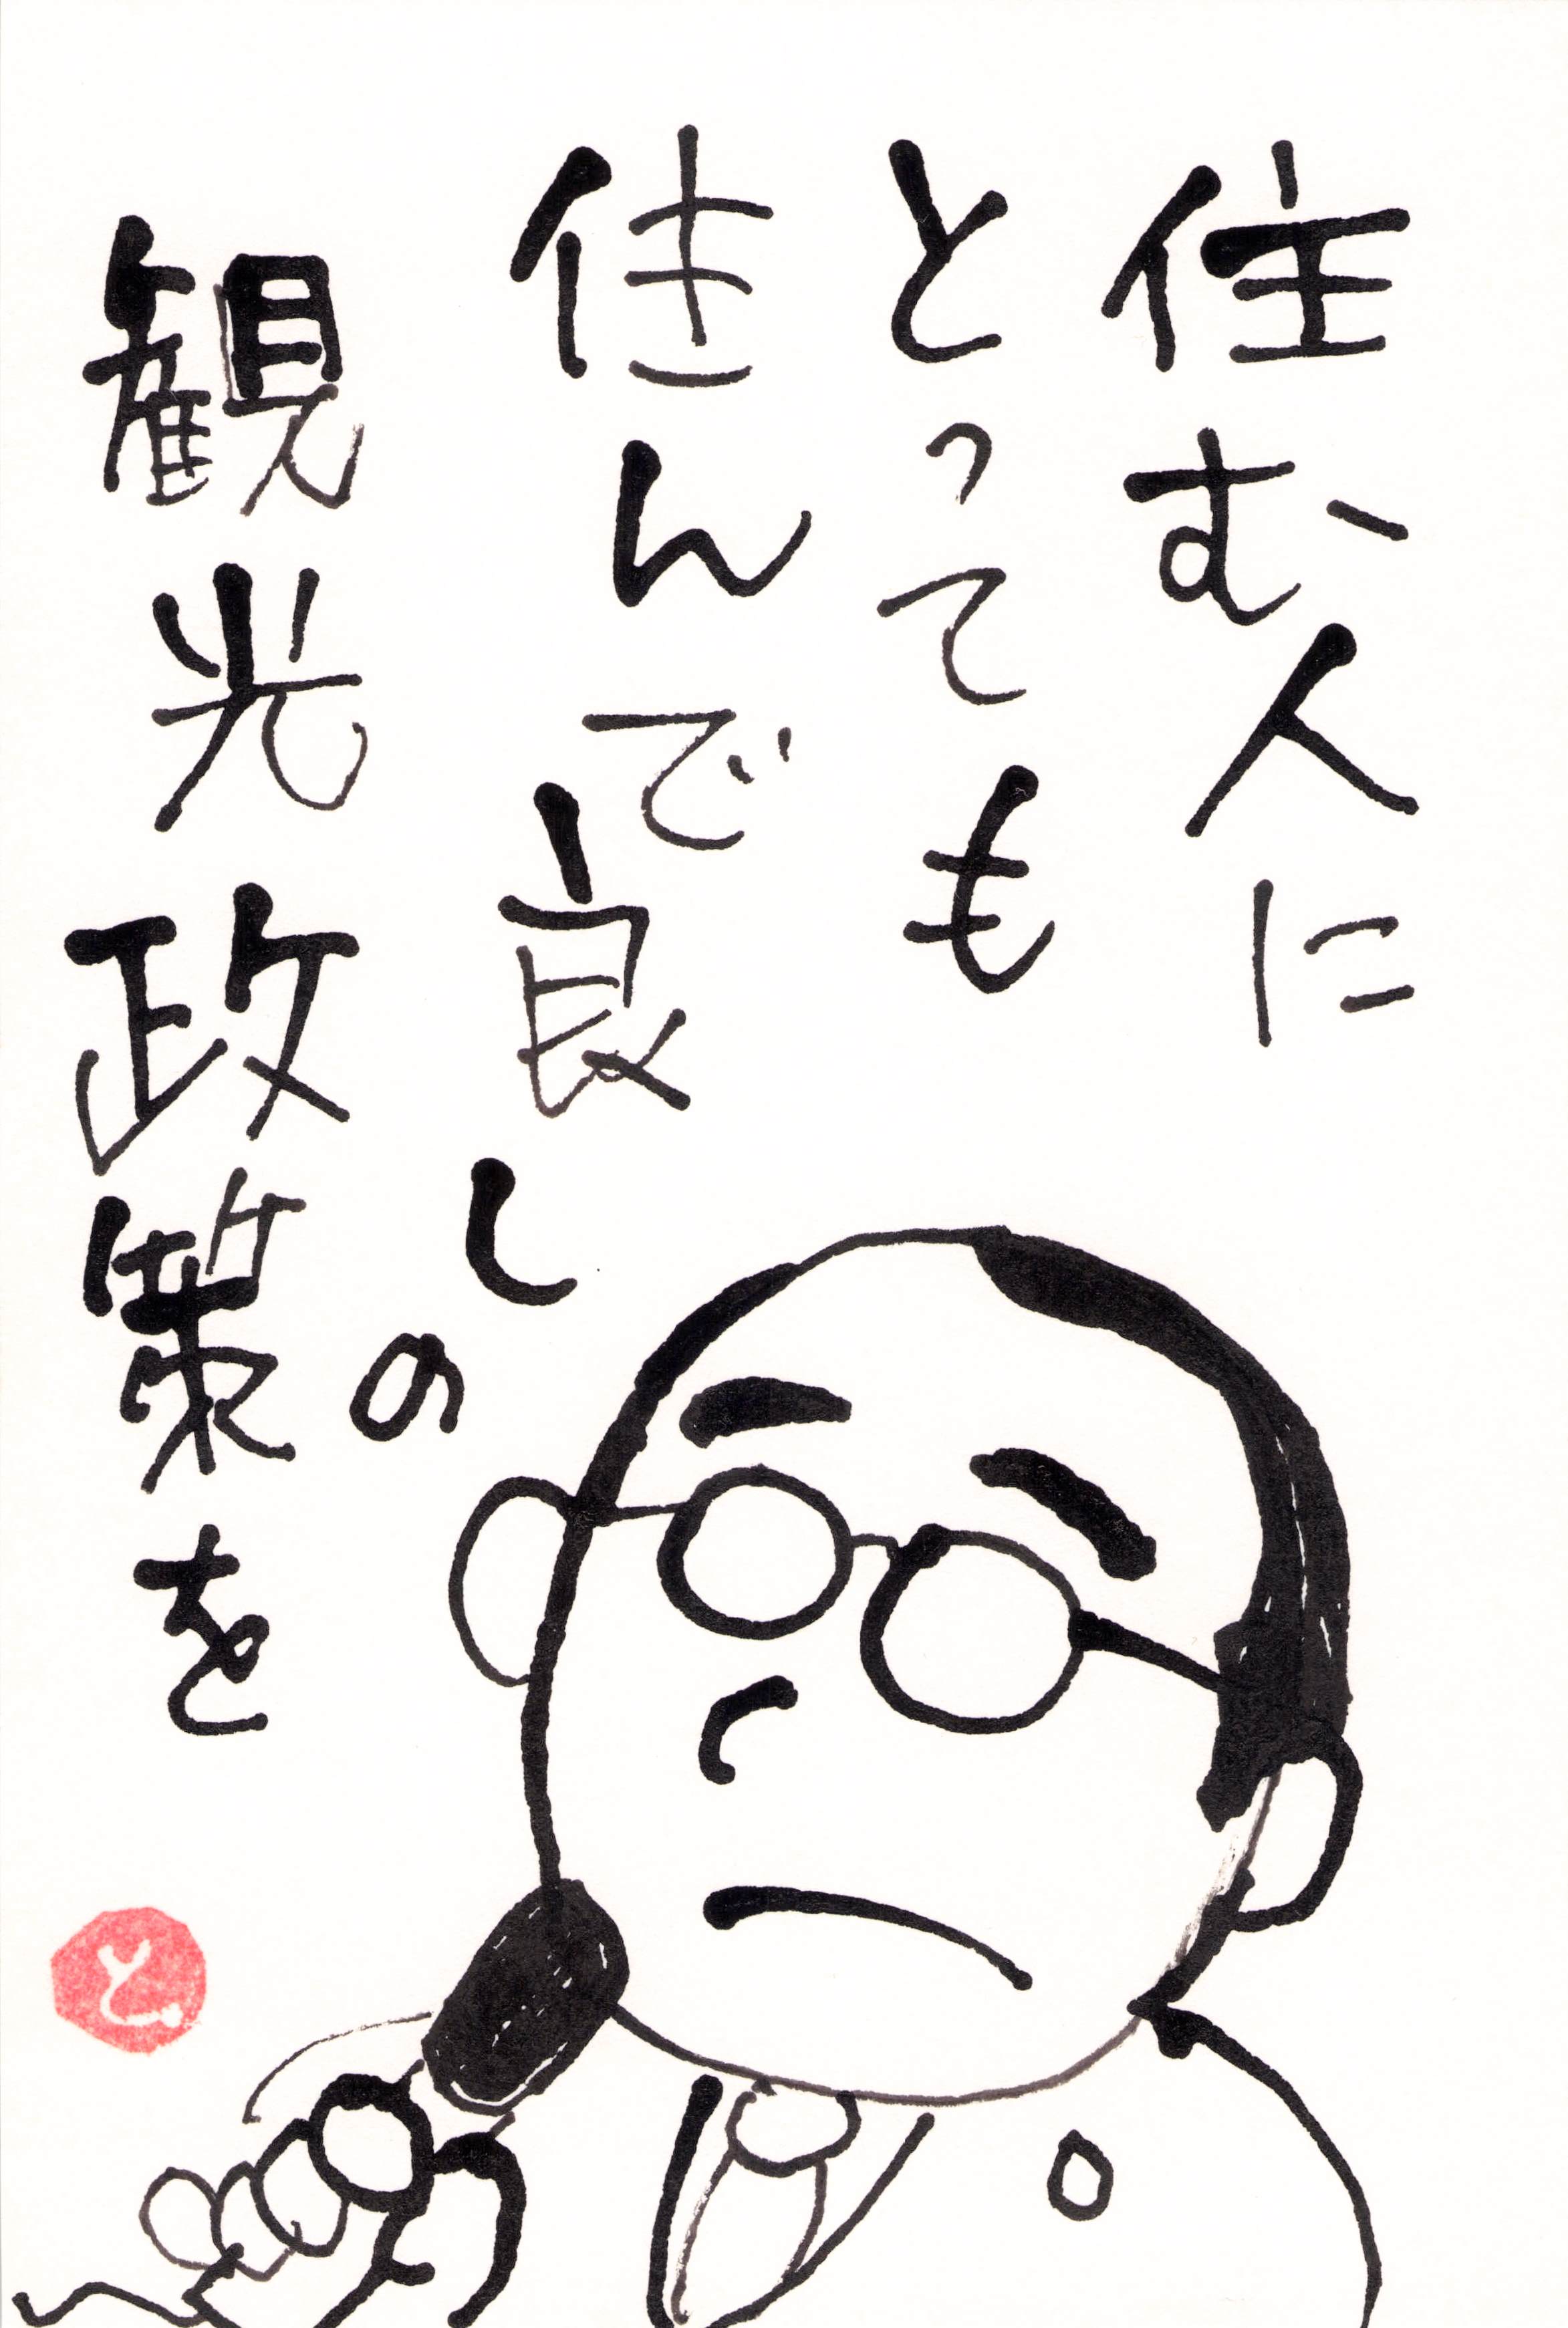 住む人に
とっても
住んで良しの
観光政策を
と